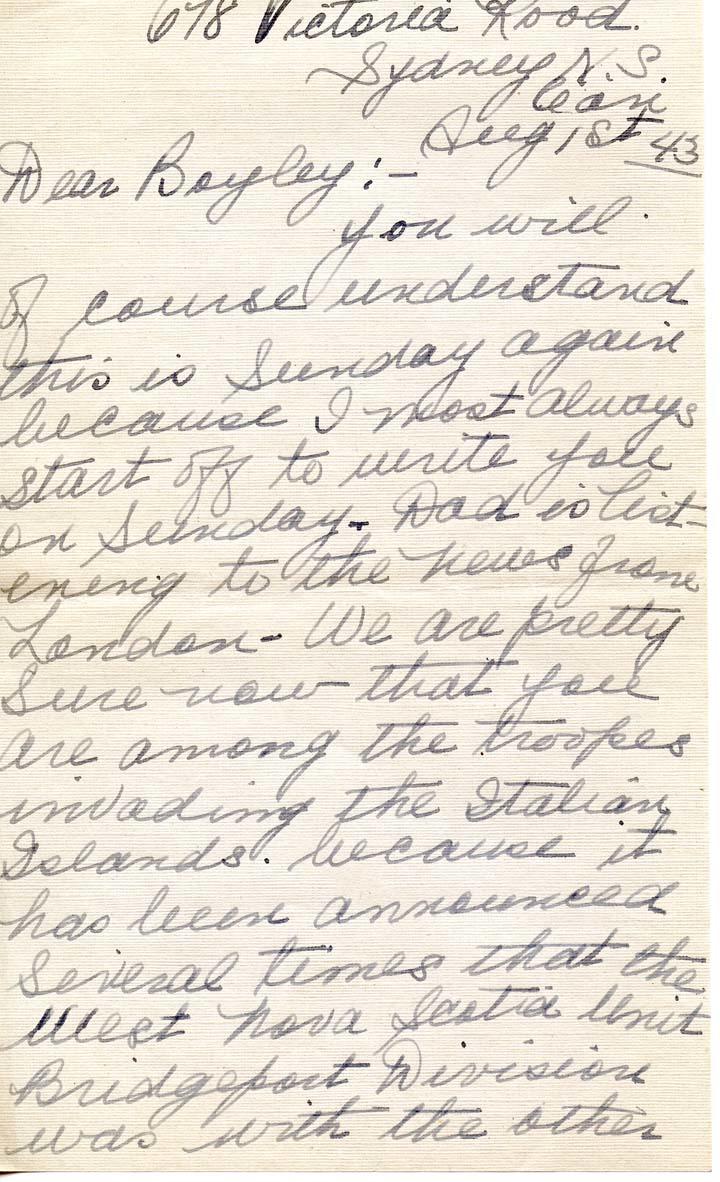 678 Victoria Road.
Sydney N.S.
Can
Aug 1st 43
Dear Boyley:-
you will
of course understand
this is Sunday again
because I most always
start off to write you
on Sunday. Dad is list-
ening to the news from
London- We are pretty
sure now that you
are among the troopes
invading the Italian
Islands. because it
has been announced
several times that the
West Nova Scotia Unit
Bridgeport Division
was with the other